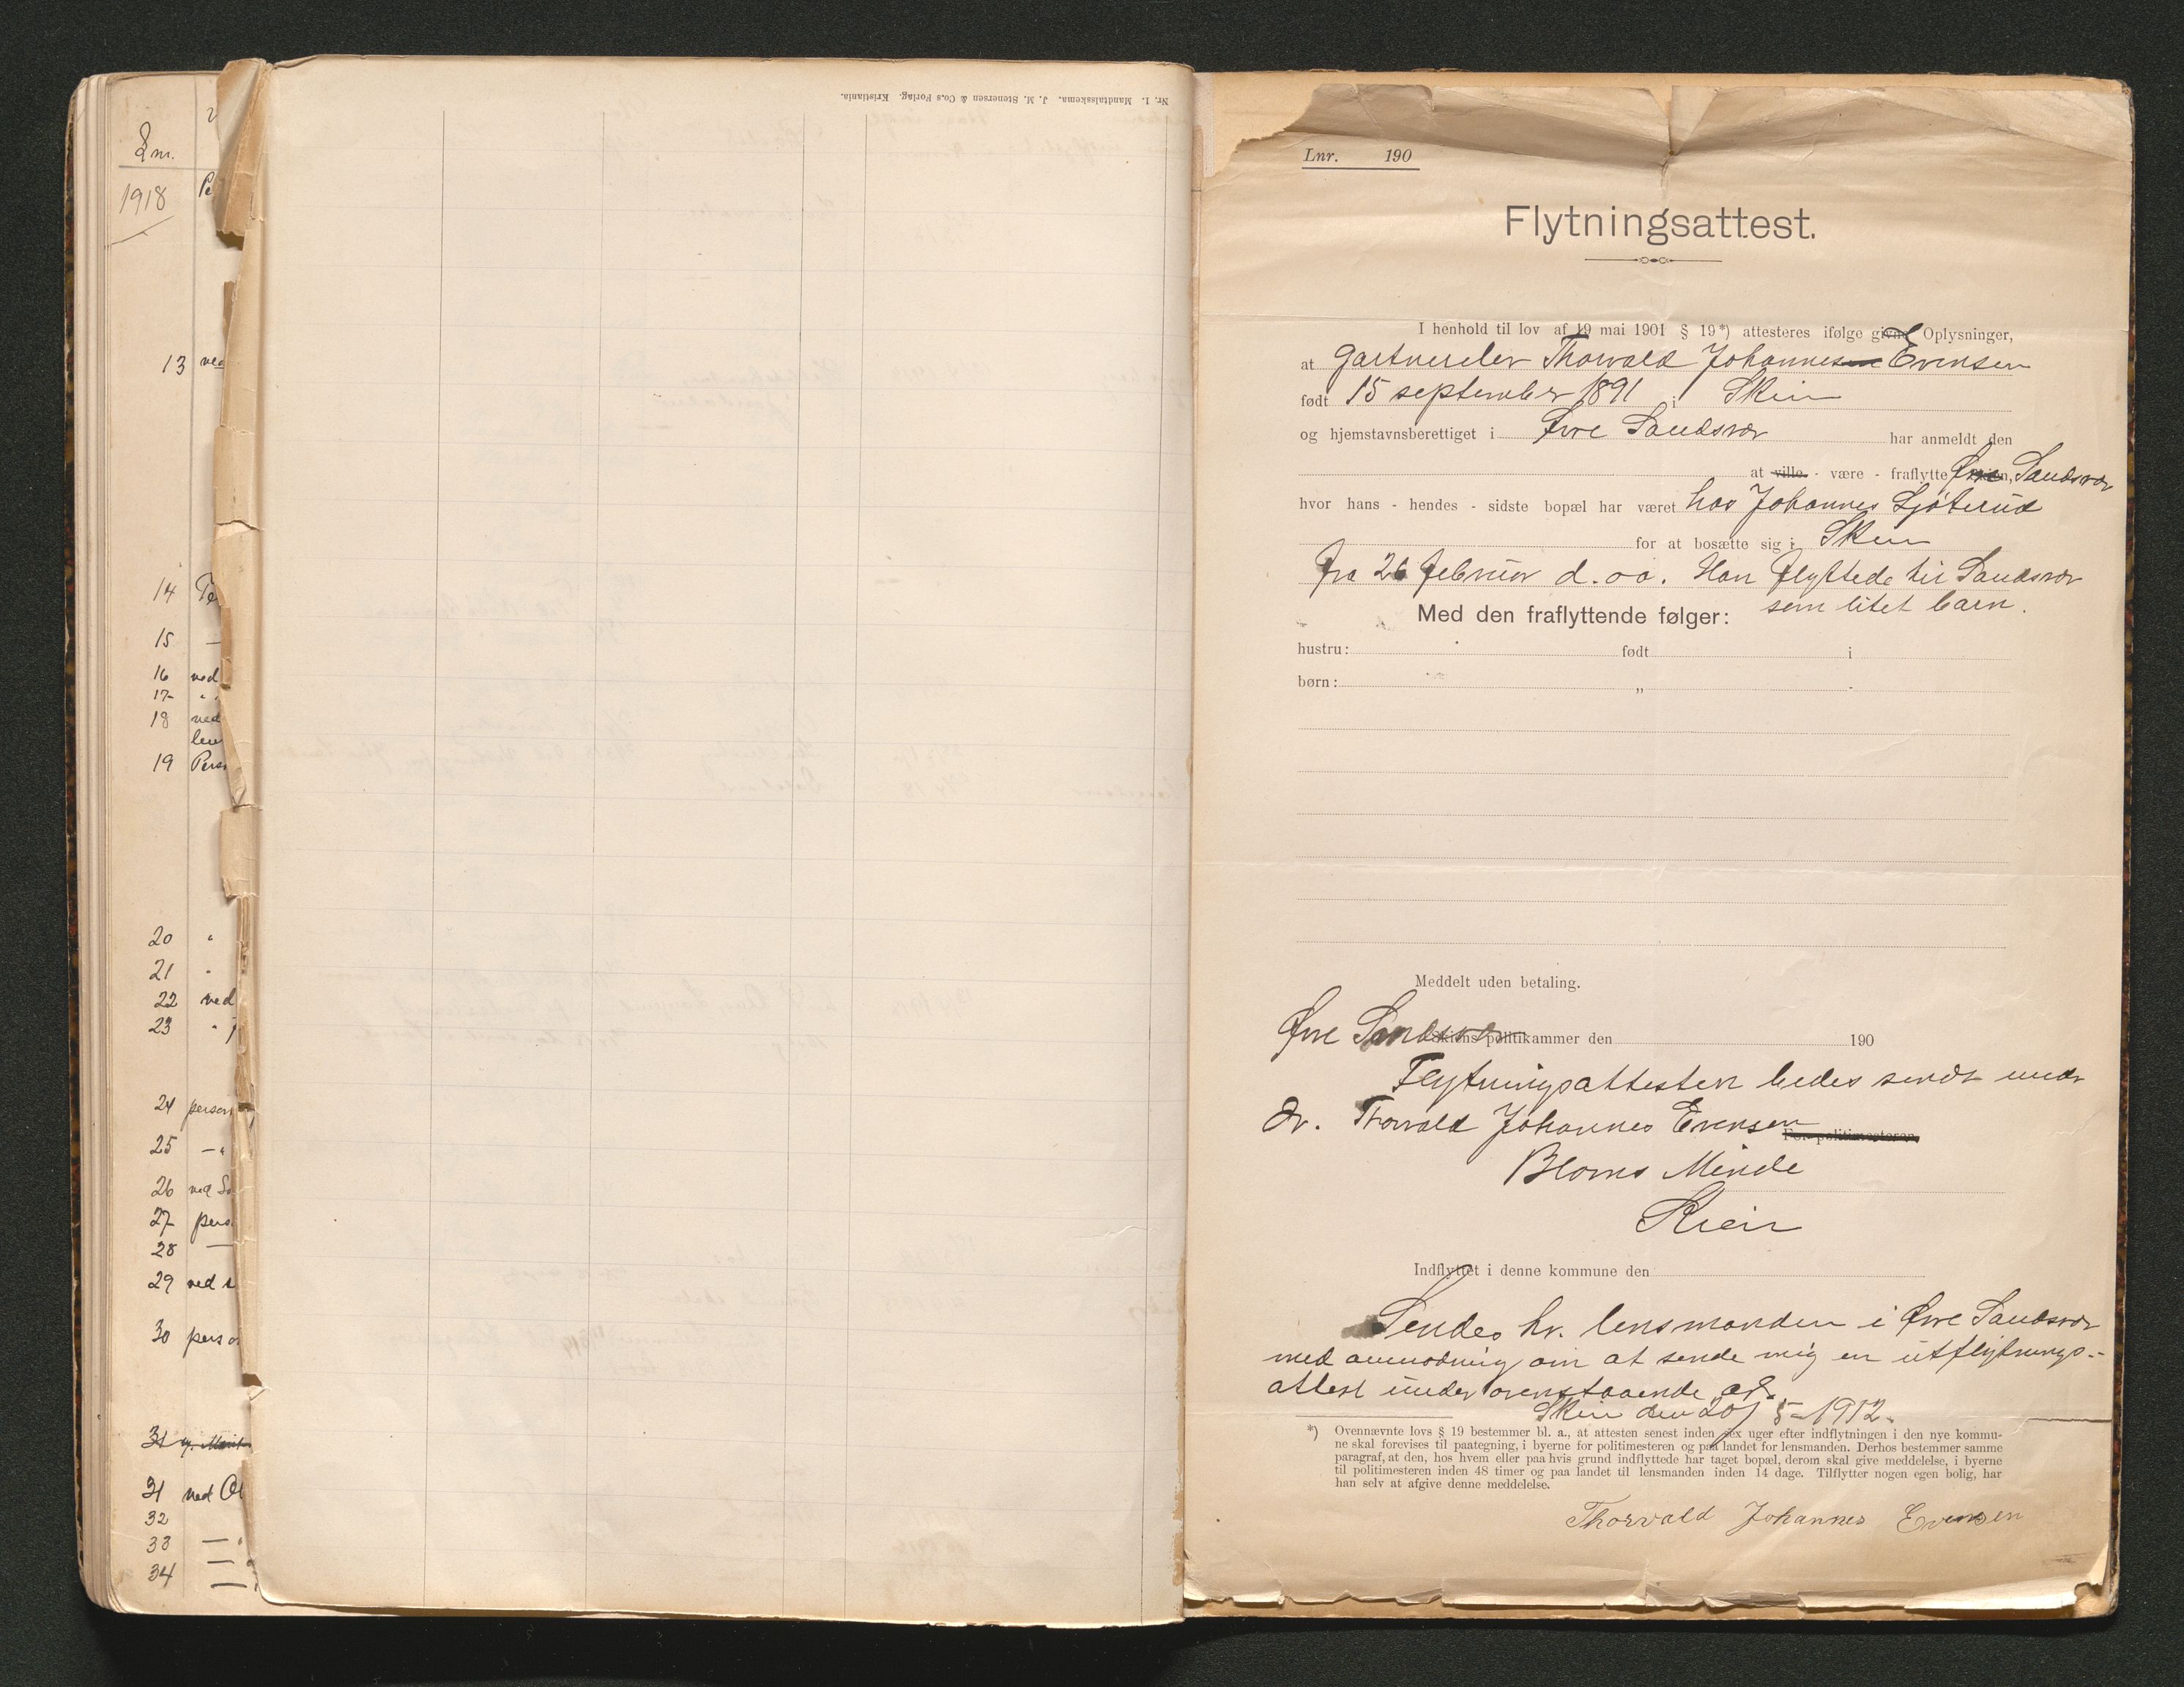 Lnr.
1918 Pe
13 ved
14 Pe
15 —
16 ved
17 " "
18 ved
len
19 Pers
20 "
21 "
22 ved
23 "
24 person
25 — "
26 ved So
27 pers
28 —
29 ved s
30 perso
31
31 ved Ol
32
33 — "
34 —
Nr. 1. Mandtalsskema. J. M. Stenersen & Co.s Forlag. Kristiania.
Lnr. 190
Flytningsattest.
I henhold til lov af 19 mai 1901 § 19*) attesteres ifølge givne Oplysninger,
at Gartnerelev Thorvald Johannesen Evensen
født 15 september 1891 i Skien
og hjemstavnsberettiget i Øvre Sandsvær har anmeldt den
at ville - være - fraflytte Øvre Sandsvær
hvor hans - hendes - sidste bopæl har været hos Johannes Sjøterud
for at bosætte sig i Skien
fra 26 februar d. aa. Han flyttede til Sandsvær
som litet barn.
Med den fraflyttende følger:
hustru: født i
børn: „
Meddelt uden betaling.
Øvre Sandsvær Skiens politikammer den 190
Flytningsattesten bedes sendt under
Ar. Thorvald Johannes Evensen
For politimesteren,
Bloms Minde
Skien
Indflyttet i denne kommune den
Sendes hr. lensmanden i Øvre Sandsvær
med anmodning om at sende mig en utflytnings-
attest under ovenstaaende
Skien den 20/5-1912.
*) Ovennævnte lovs § 19 bestemmer bl. a., at attesten senest inden sex uger efter indflytningen i den nye kommu-
ne skal forevises til paategning, i byerne for politimesteren og paa landet for lensmanden. Derhos bestemmer samme
paragraf, at den, hos hvem eller paa hvis grund indflyttede har taget bopæl, derom skal give meddelelse, i byerne
til politimesteren inden 48 timer og paa landet til lensmanden inden 14 dage. Tilflytter nogen egen bolig, har
han selv at afgive denne meddelelse.
Thorvald Johannes Evensen